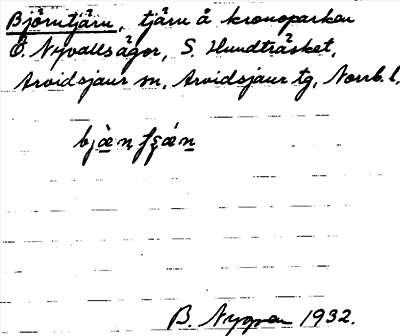 Björntjärn, tjärn å kronoparken
Ö. Nyvallsågor, S. Hundträsket,
Arvidsjaur sn, Arvidsjaur tg, Norrb. l.
B. Nygren 1932.